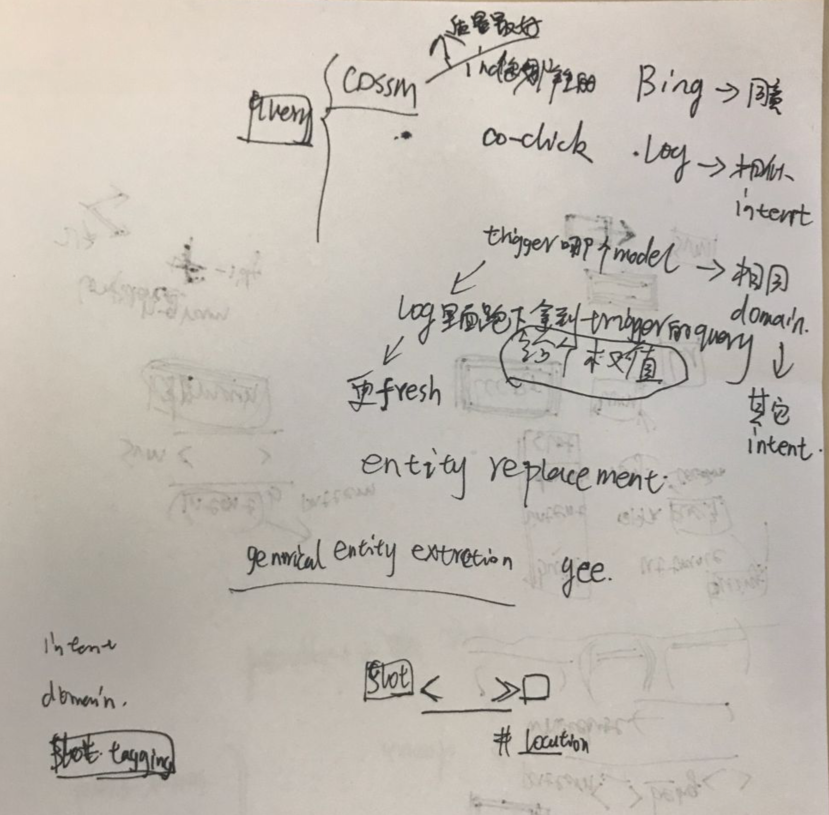 质量最好
query
COSSM
Bing →
co-click
.Log → 相似
intent
trigger 哪个 model → 相同
domain.
Log 里面跑下拿到 trigger 的 query
给个权值
更 fresh
其它
intent.
entity replacement.
genrical entity extretion gee.
intent
domain.
slot tagging
slot < >> □
# location